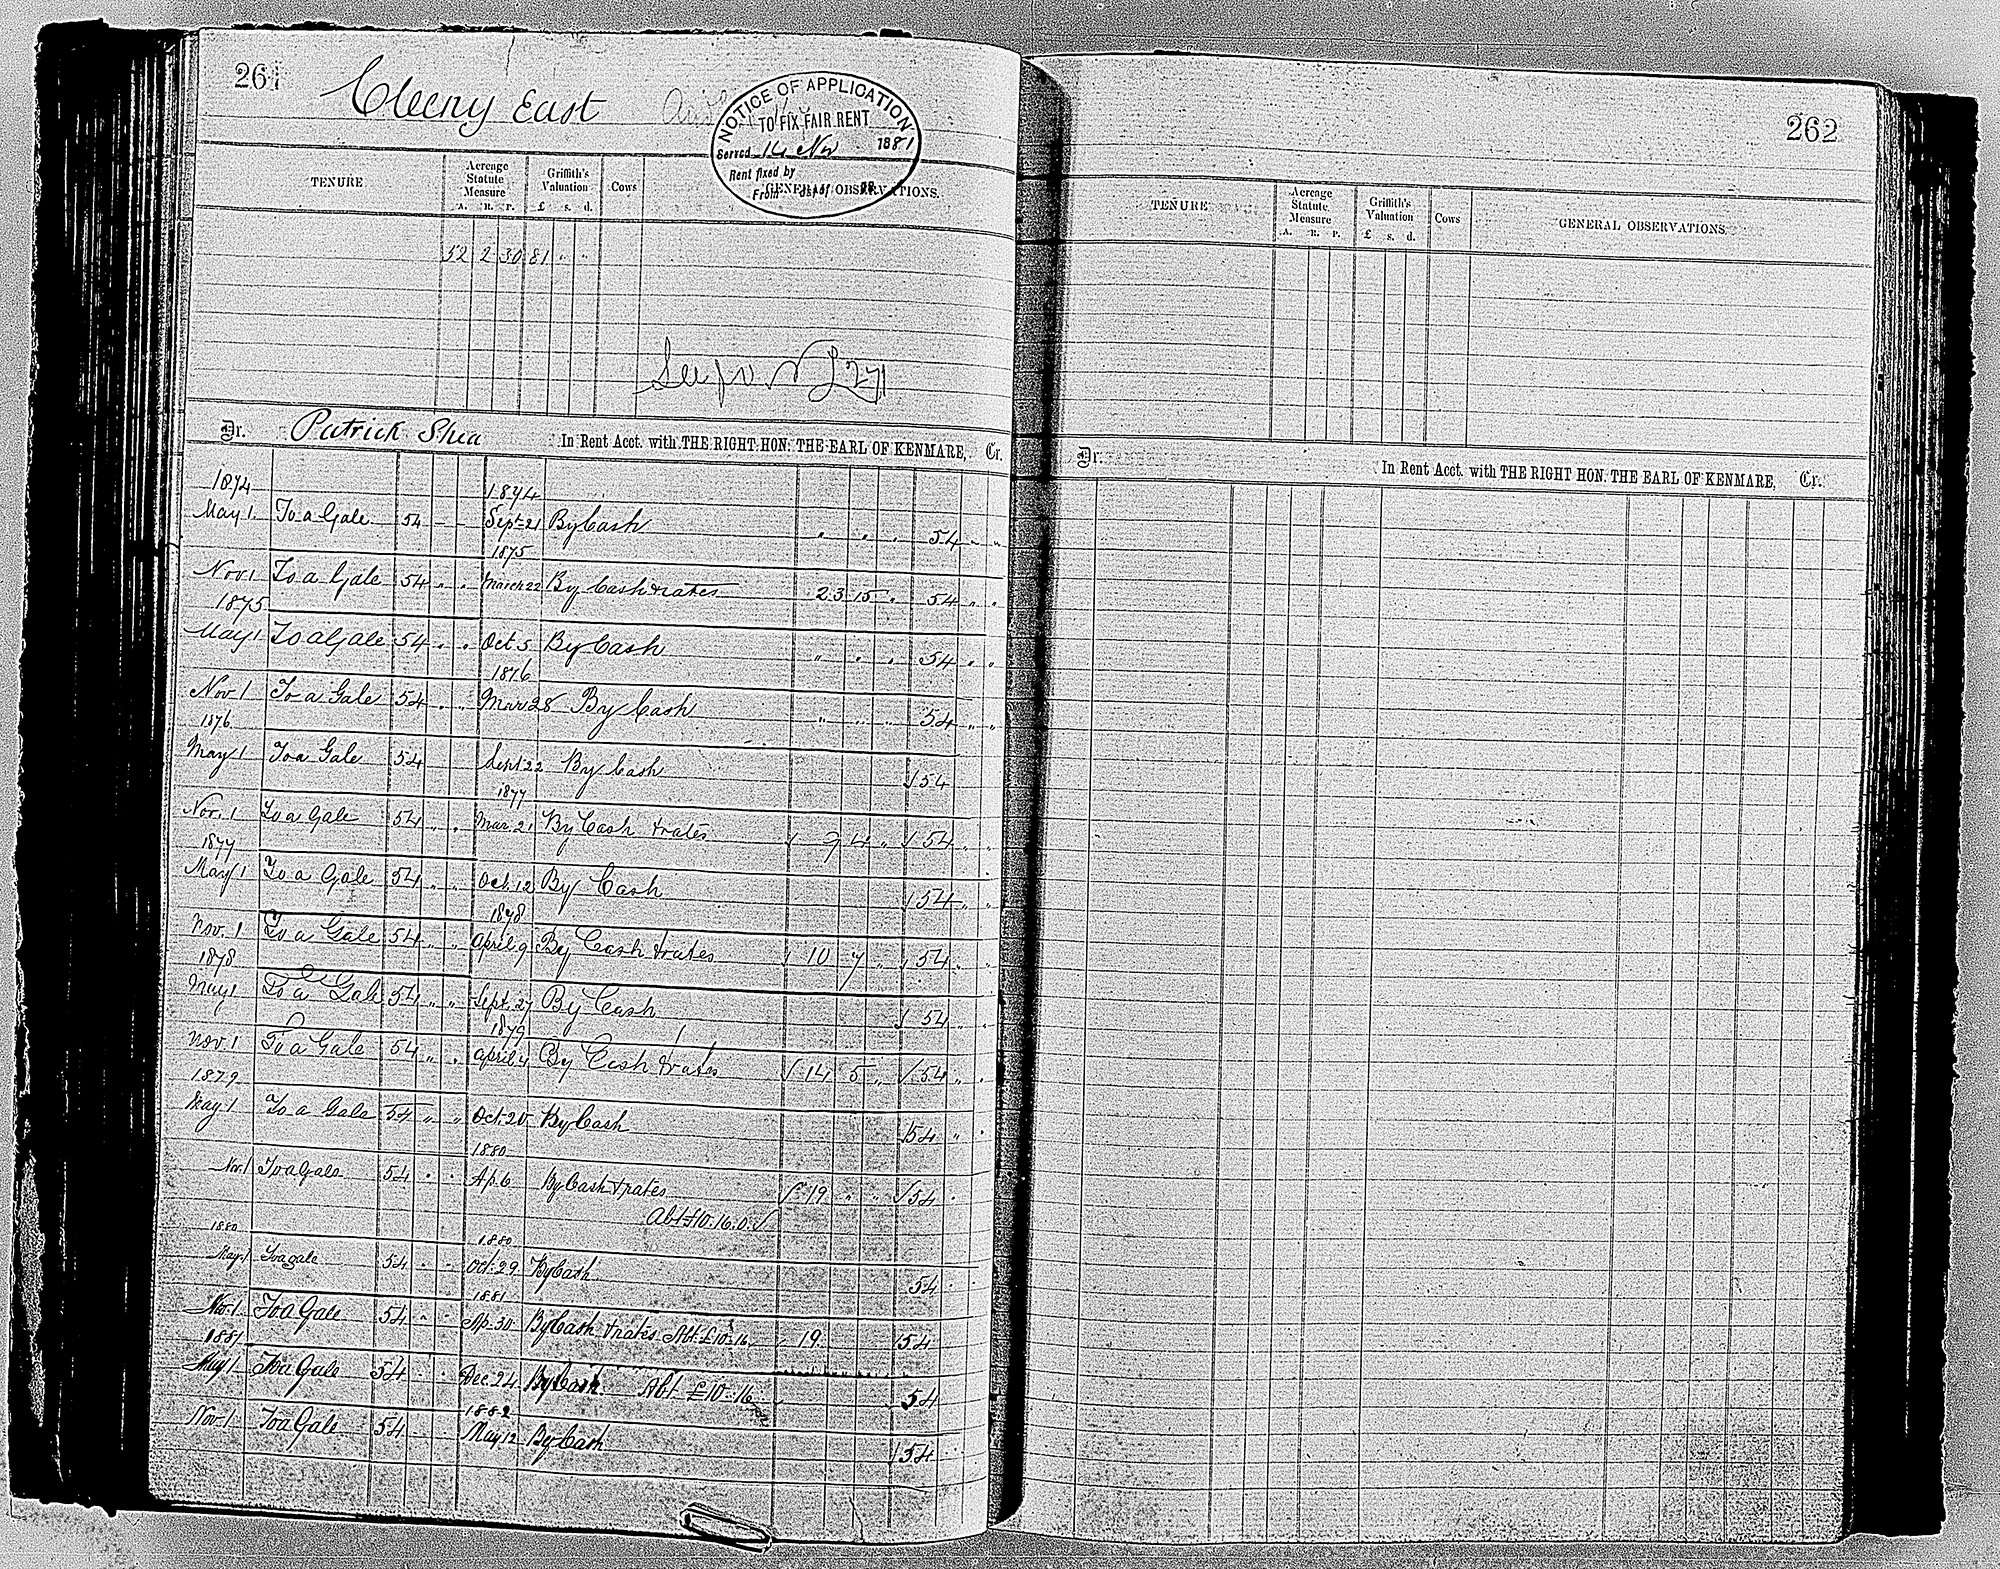 261
Cleeny East
NOTICE OF APPLICATION
TO FIX FAIR RENT
Served 14 Nov 1881
Rent fixed by
From 1st of 188
TENURE
Acreage Statute Measure
A. R. P.
Griffith's Valuation
£ s. d.
Cows
GENERAL OBSERVATIONS.
52 2 30 81 " "
See
Dr. Patrick Shea In Rent Acct. with THE RIGHT HON. THE EARL OF KENMARE, Cr.
1874 1874
May 1. To a Gale 54 - - Sept 21 By Cash " " " 54 " "
1875
Nov 1 To a Gale 54 " " March 22 By Cash & rates 23 15 " 54 " "
1875
May 1 To a Gale 54 " " Oct 5 By Cash " " " 54 " "
1876
Nov 1 To a Gale 54 " " Mar 28 By Cash " " " 54 " "
1876
May 1 To a Gale 54 Sept 22 By Cash 54
1877
Nov. 1 To a Gale 54 " " Mar. 21 By Cash & rates 4 " 54 " "
1877
May 1 To a Gale 54 " " Oct. 12 By Cash 54 " "
1878
Nov. 1 To a Gale 54 " " April 9 By Cash & rates 10 7 " 54 " "
1878
May 1 To a Gale 54 " " Sept. 27 By Cash 54 " "
1879
Nov. 1 To a Gale 54 " " April 4 By Cash & rates 14 5 " 54 " "
1879
May 1 To a Gale 54 " " Oct. 20 By Cash 54 " "
1880
Nov. 1 To a Gale 54 " " Ap. 6 By Cash & rates 19 " " 54 "
Abt £10.16.0
1880 1880
May 1 To a gale 54 " " Oct. 29 By Cash 54
1881
Nov. 1 To a Gale 54 " " Ap. 30 By Cash & rates Abt. £10.16 19 54
1881
May 1 To a Gale 54 " " Dec. 24 By Cash Abt £10.16 54
1882
Nov. 1 To a Gale 54 May 12 By Cash 54
262
TENURE
Acreage Statute Measure
A. R. P.
Griffith's Valuation
£ s. d.
Cows
GENERAL OBSERVATIONS.
Dr. In Rent Acct. with THE RIGHT HON. THE EARL OF KENMARE, Cr.